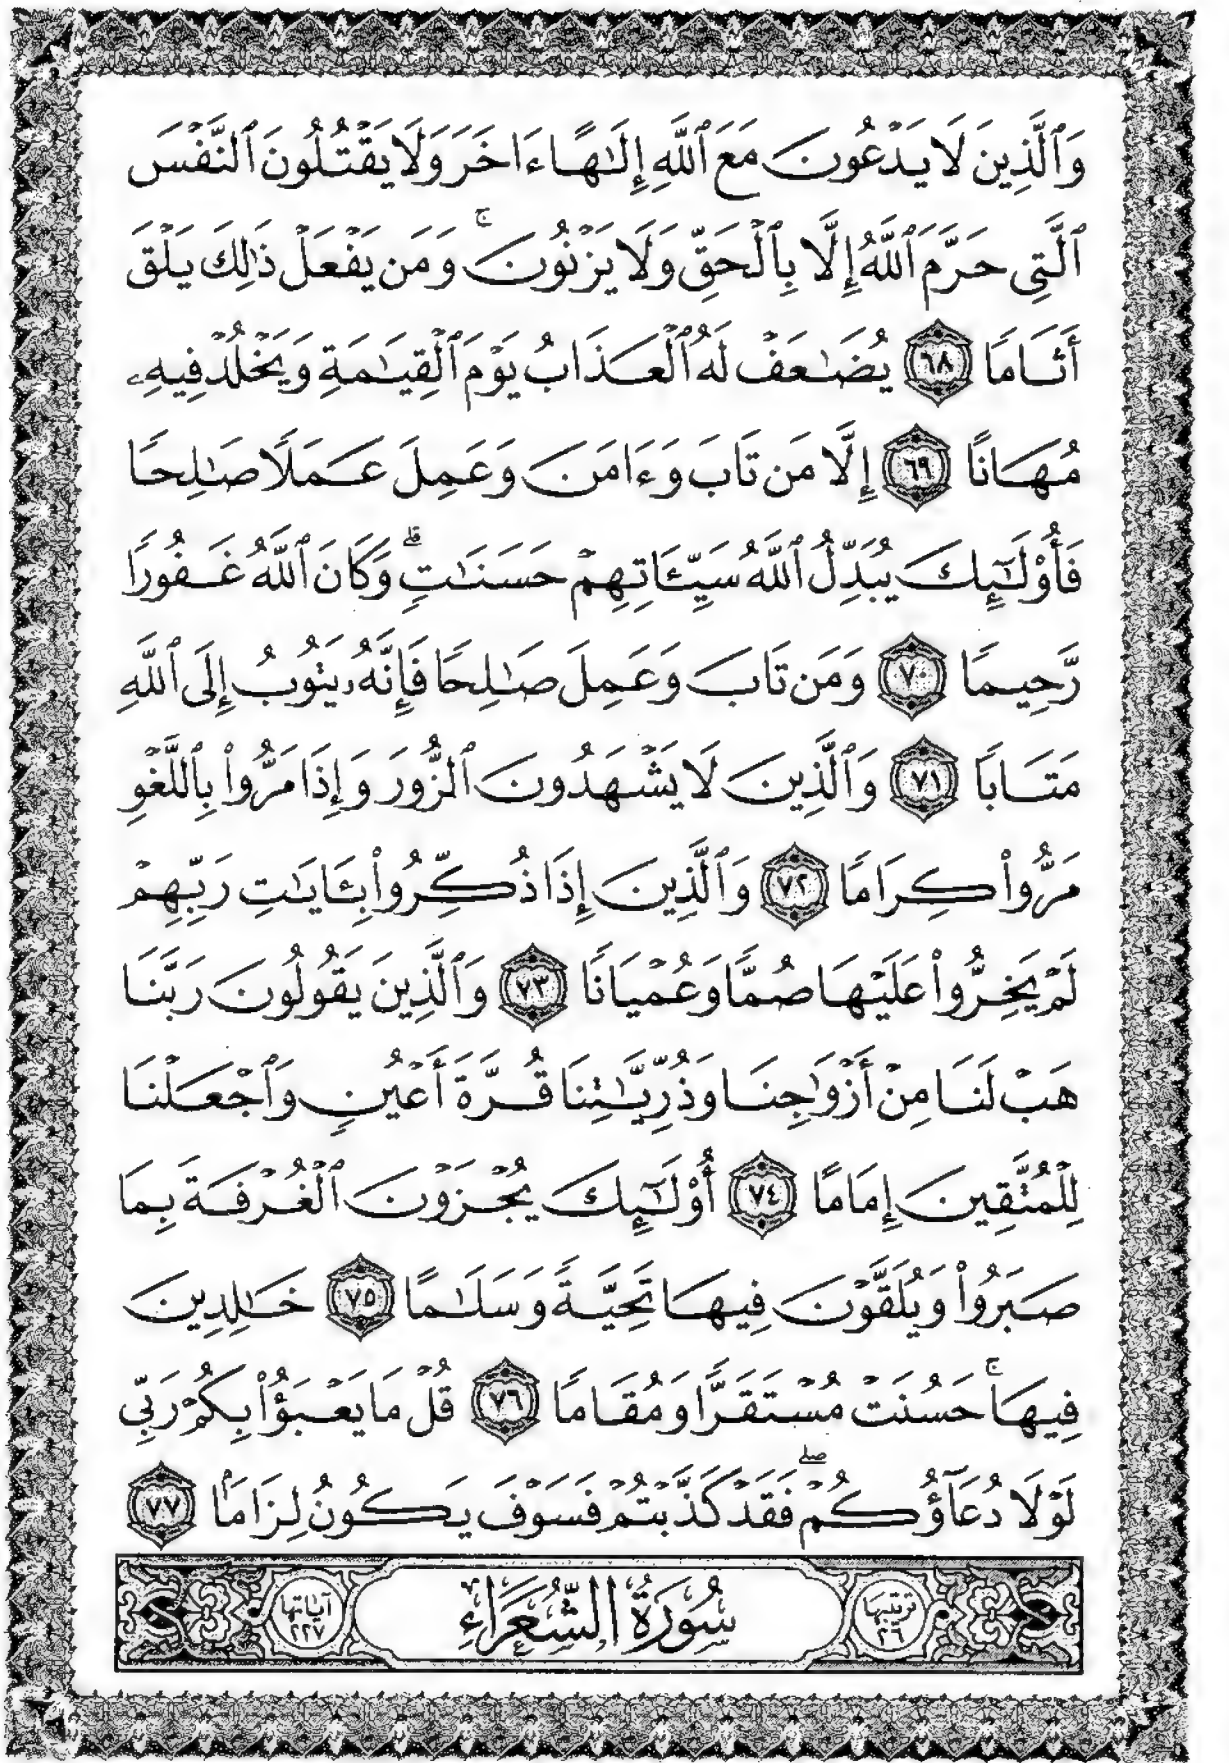 وَٱلَّذِينَ لَا يَدْعُونَ مَعَ ٱللَّهِ إِلَـٰهًا ءَاخَرَ وَلَا يَقْتُلُونَ ٱلنَّفْسَ
ٱلَّتِى حَرَّمَ ٱللَّهُ إِلَّا بِٱلْحَقِّ وَلَا يَزْنُونَ ۚ وَمَن يَفْعَلْ ذَٰلِكَ يَلْقَ
أَثَامًا ٦٨ يُضَـٰعَفْ لَهُ ٱلْعَذَابُ يَوْمَ ٱلْقِيَـٰمَةِ وَيَخْلُدْ فِيهِۦ
مُهَانًا ٦٩ إِلَّا مَن تَابَ وَءَامَنَ وَعَمِلَ عَمَلًا صَـٰلِحًا
فَأُو۟لَـٰٓئِكَ يُبَدِّلُ ٱللَّهُ سَيِّـَٔاتِهِمْ حَسَنَـٰتٍ ۗ وَكَانَ ٱللَّهُ غَفُورًا
رَّحِيمًا ٧٠ وَمَن تَابَ وَعَمِلَ صَـٰلِحًا فَإِنَّهُۥ يَتُوبُ إِلَى ٱللَّهِ
مَتَابًا ٧١ وَٱلَّذِينَ لَا يَشْهَدُونَ ٱلزُّورَ وَإِذَا مَرُّوا۟ بِٱللَّغْوِ
مَرُّوا۟ كِرَامًا ٧٢ وَٱلَّذِينَ إِذَا ذُكِّرُوا۟ بِـَٔايَـٰتِ رَبِّهِمْ
لَمْ يَخِرُّوا۟ عَلَيْهَا صُمًّا وَعُمْيَانًا ٧٣ وَٱلَّذِينَ يَقُولُونَ رَبَّنَا
هَبْ لَنَا مِنْ أَزْوَٰجِنَا وَذُرِّيَّـٰتِنَا قُرَّةَ أَعْيُنٍ وَٱجْعَلْنَا
لِلْمُتَّقِينَ إِمَامًا ٧٤ أُو۟لَـٰٓئِكَ يُجْزَوْنَ ٱلْغُرْفَةَ بِمَا
صَبَرُوا۟ وَيُلَقَّوْنَ فِيهَا تَحِيَّةً وَسَلَـٰمًا ٧٥ خَـٰلِدِينَ
فِيهَا ۚ حَسُنَتْ مُسْتَقَرًّا وَمُقَامًا ٧٦ قُلْ مَا يَعْبَؤُا۟ بِكُمْ رَبِّى
لَوْلَا دُعَآؤُكُمْ ۖ فَقَدْ كَذَّبْتُمْ فَسَوْفَ يَكُونُ لِزَامًۢا ٧٧
ترتيبها ٢٦ سُورَةُ الشُّعَرَاءِ آياتها ٢٢٧